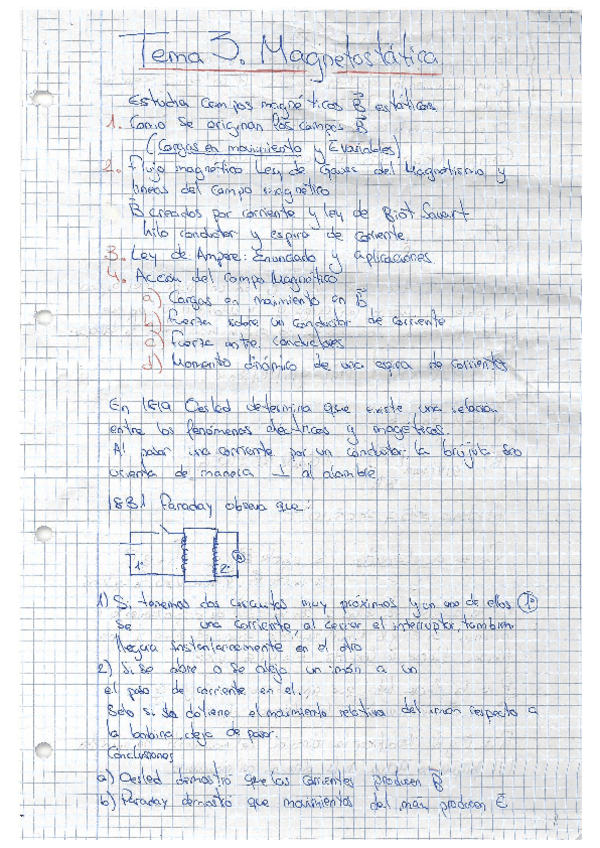 Tema 3. Magnetostática
Estudia campos magnéticos B⃗ estáticos
1. Como se originan los campos B⃗
(Cargas en movimiento y E variables)
2. Flujo magnético Ley de Gauss del Magnetismo y
lineas del campo magnético
B⃗ creados por corriente y ley de Biot Savart
hilo conductor y espira de corriente
3. Ley de Ampere: Enunciado y aplicaciones
4. Acción del campo Magnético
a) Cargas en movimiento en B⃗
b) Fuerza sobre un conductor de corriente
c) Fuerza entre conductores
d) Momento dinámico de una espira de corrientes
En 1819 Oested determina que existe una relacion
entre los fenómenos electricos y magéticos.
Al pasar una corriente por un conductor la brújula
orienta de manera ⊥ al alambre
1831 Faraday observa que:
1º 2º
1) Si tenemos dos circuitos muy próximos y en uno de ellos (1º)
se una corriente, al cerrar el interruptor, tambien
llegara instantaneamente en el otro
2) Si se abre o se aleja un imán a un
el paso de corriente en el.
Solo si se detiene el movimiento relativo del iman respecto a
la bobina deja de pasar.
Conclusiones
a) Oested demostró que las corrientes producen B⃗
b) Faraday demostro que movimientos del iman producen E⃗